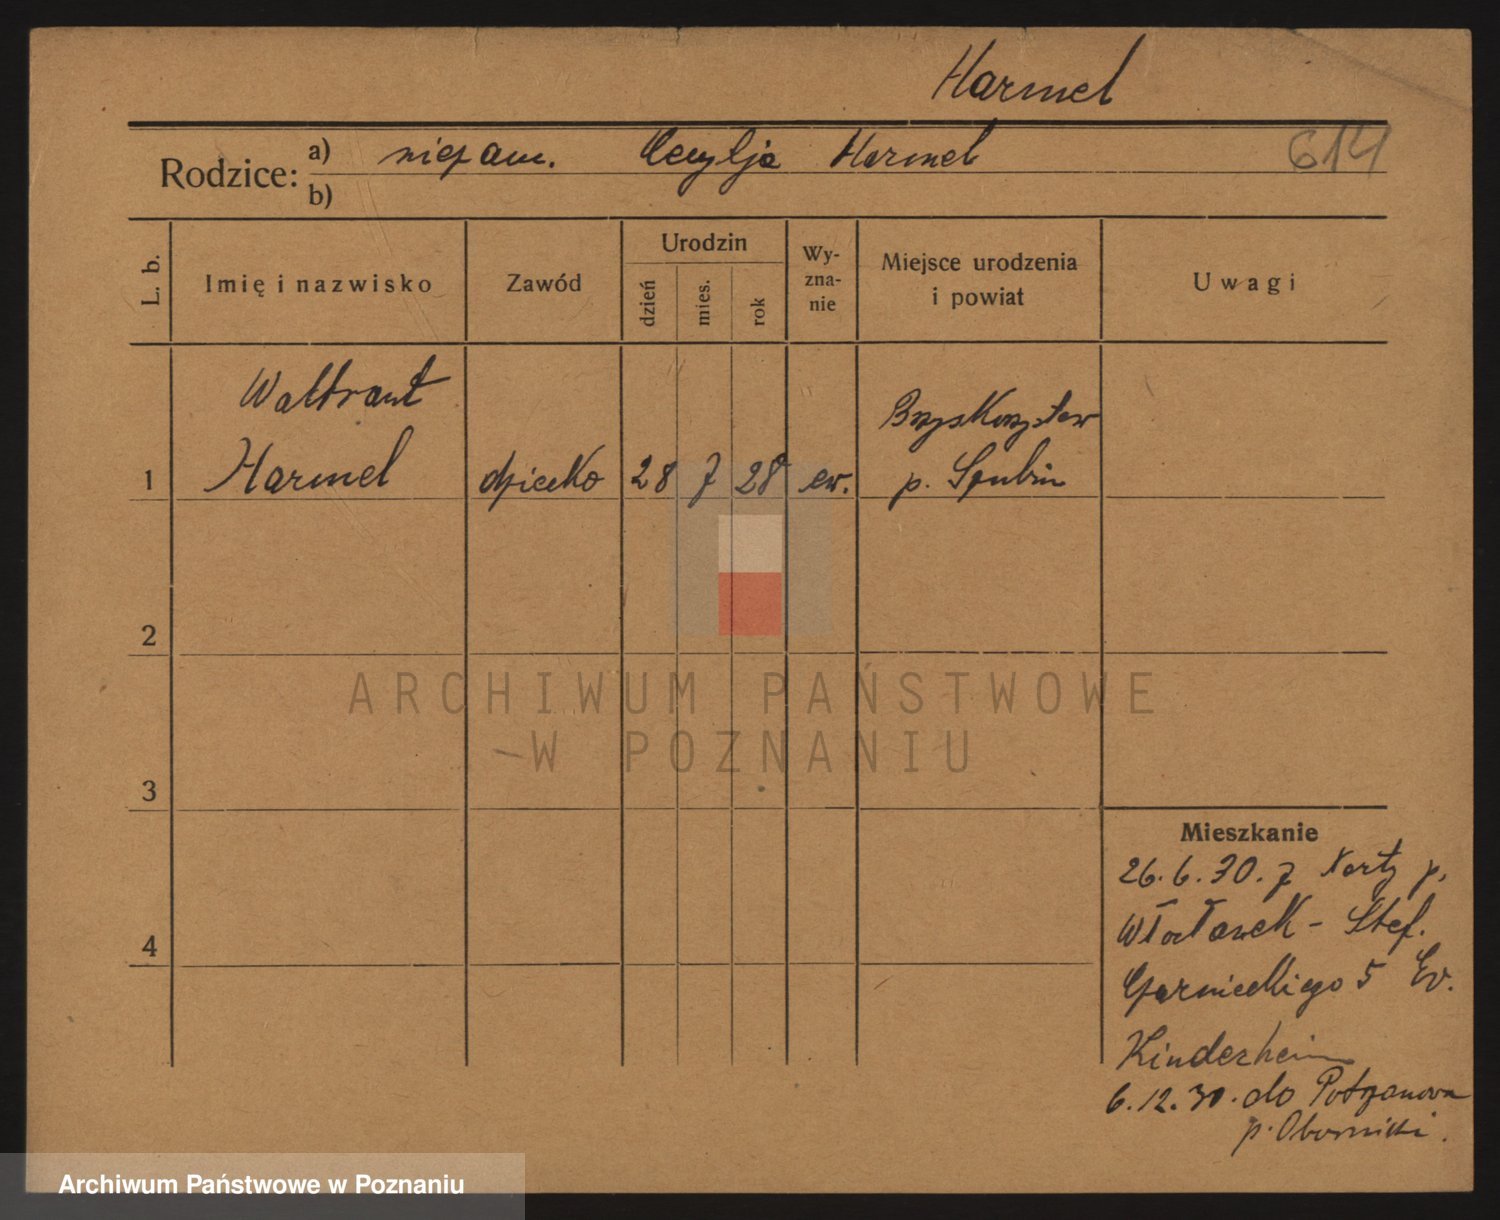 Harmel
614
Rodzice: a) niezam. Cecylja Harmel
b)
L. b.
Imię i nazwisko
Zawód
Urodzin
dzień
mies.
rok
Wy-
zna-
nie
Miejsce urodzenia
i powiat
Uwagi
Waltraut
1 Harmel dziecko 28 7 28 ew.
Brzyskorzystew
p. Szubin
2
3
4
Mieszkanie
26.6.30. z p.
Włocławek - Stef.
Czarnieckiego 5 Ev.
Kinderheim
6.12.30. do
p. Obornicki.
ARCHIWUM PAŃSTWOWE
W POZNANIU
Archiwum Państwowe w Poznaniu